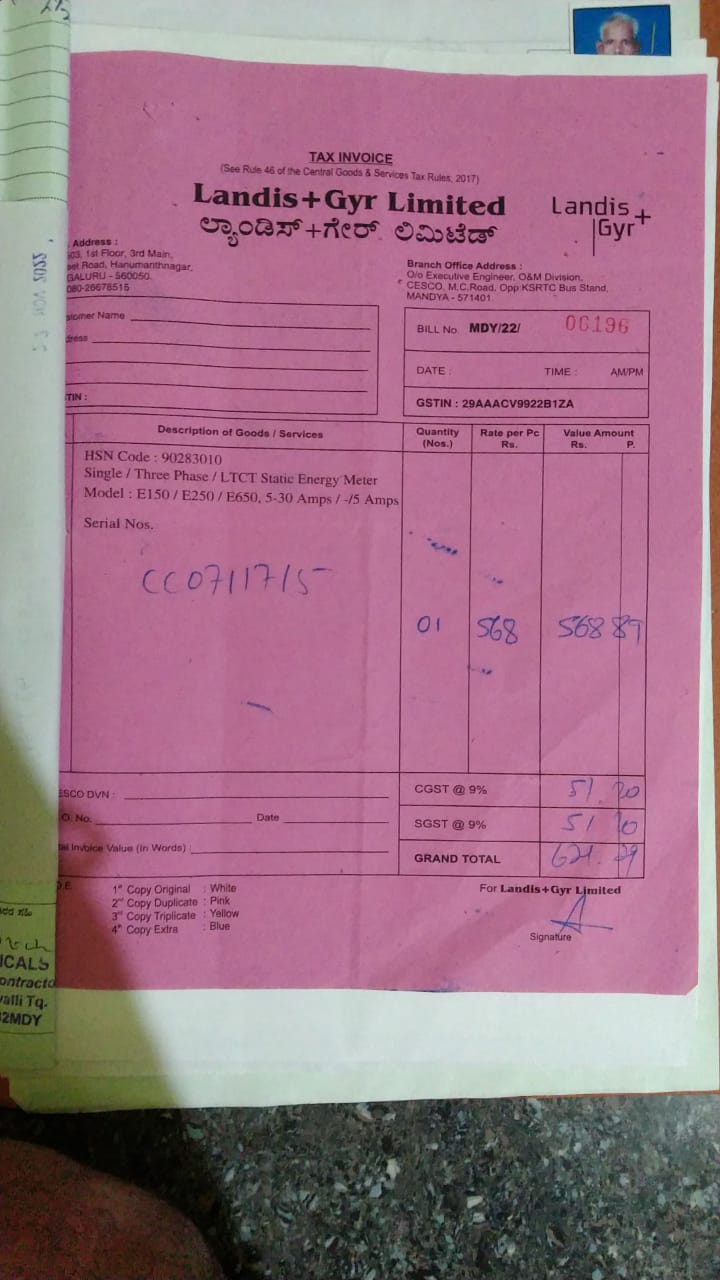 TAX INVOICE
(See Rule 46 of the Central Goods & Services Tax Rules, 2017)
Landis+Gyr Limited
ಲ್ಯಾಂಡಿಸ್+ಗೇರ್ ಲಿಮಿಟೆಡ್
Landis+
Gyr
Address :
1st Floor, 3rd Main,
Road, Hanumanthnagar,
GALURU - 560050.
080-26678515
Branch Office Address :
O/o Executive Engineer, O&M Division,
CESCO, M.C.Road, Opp:KSRTC Bus Stand,
MANDYA - 571401
stomer Name
dress
TIN :
BILL No. MDY/22/ 06196
DATE : TIME : AM/PM
GSTIN : 29AAACV9922B1ZA
Description of Goods / Services
Quantity (Nos.)
Rate per Pc Rs.
Value Amount Rs. P.
HSN Code : 90283010
Single / Three Phase / LTCT Static Energy Meter
Model : E150 / E250 / E650, 5-30 Amps / -/5 Amps
Serial Nos.
CC071715
01 568 568 89
ESCO DVN :
O. No. Date
al Invoice Value (In Words)
CGST @ 9% 51. 20
SGST @ 9% 51 20
GRAND TOTAL
1st Copy Original : White
2nd Copy Duplicate : Pink
3rd Copy Triplicate : Yellow
4th Copy Extra : Blue
For Landis+Gyr Limited
Signature
NOV 2022
ICALS
ontracto
valli Tq.
2MDY